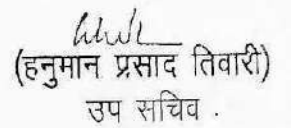 (हनुमान प्रसाद तिवारी)
उप सचिव .